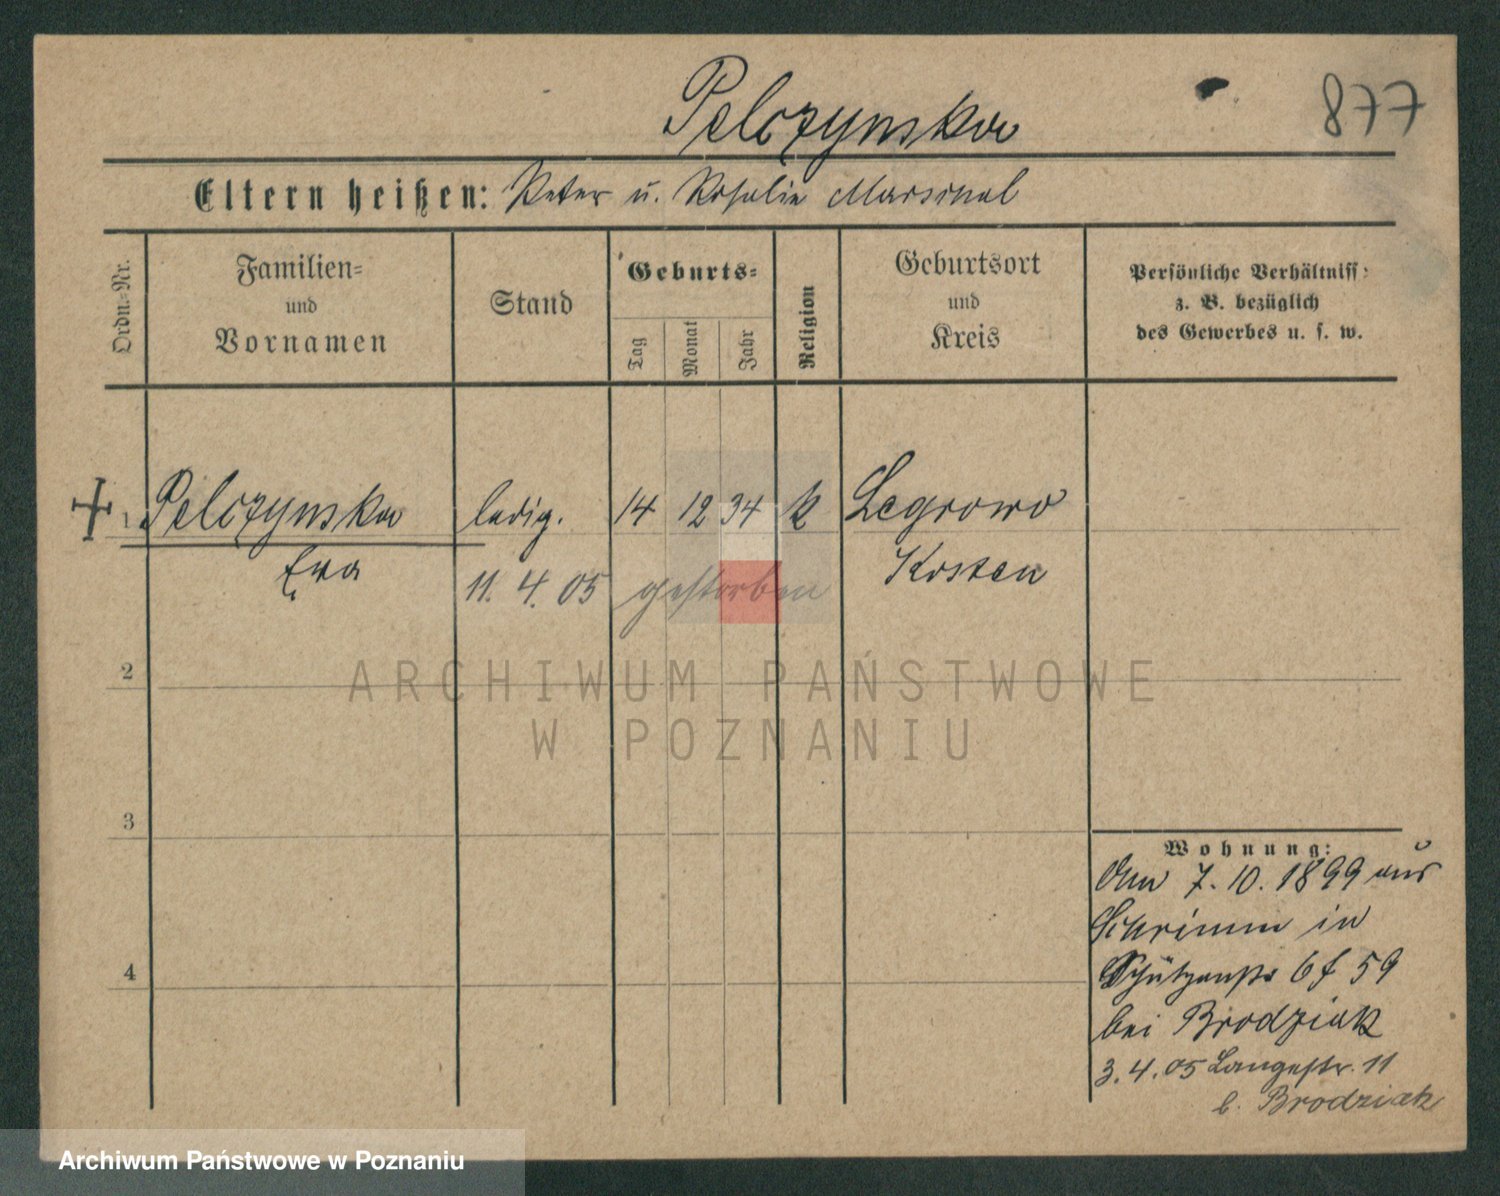 877
Pelczynska
Eltern heißen: Peter u. Rosalie Marsinal
Ordn.=Nr.
Familien=
und
Vornamen
Stand
Geburts=
Tag
Monat
Jahr
Religion
Geburtsort
und
Kreis
Persönliche Verhältniss:
z. B. bezüglich
des Gewerbes u. s. w.
1 Pelczynska ledig. 14 12 34 k Legrowo
Eva 11. 4. 05 gestorben Kosten
2
ARCHIWUM PAŃSTWOWE
W POZNANIU
3
4
Wohnung:
Am 7. 10. 1899 aus
Schrimm in
Schützenstr 6 f 59
bei Brodziak
3. 4. 05 Langestr. 11
b. Brodziak
Archiwum Państwowe w Poznaniu